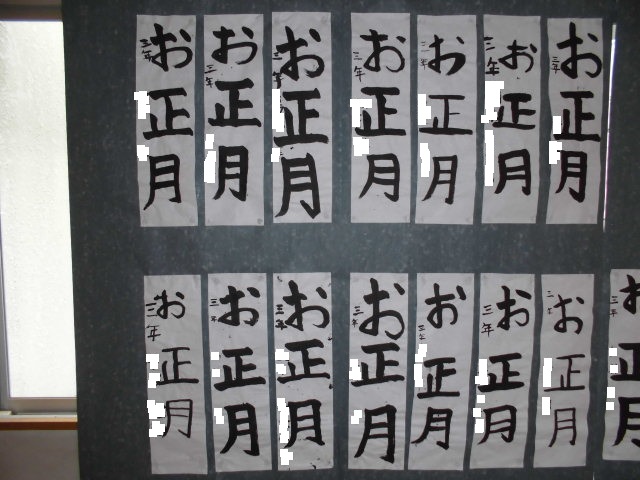 お正月
三年
お正月
三年
お正月
三年
お正月
三年
お正月
三年
お正月
三年
お正月
三年
お正月
三年
お正月
三年
お正月
三年
お正月
三年
お正月
三年
お正月
三年
お正月
三年
お正月